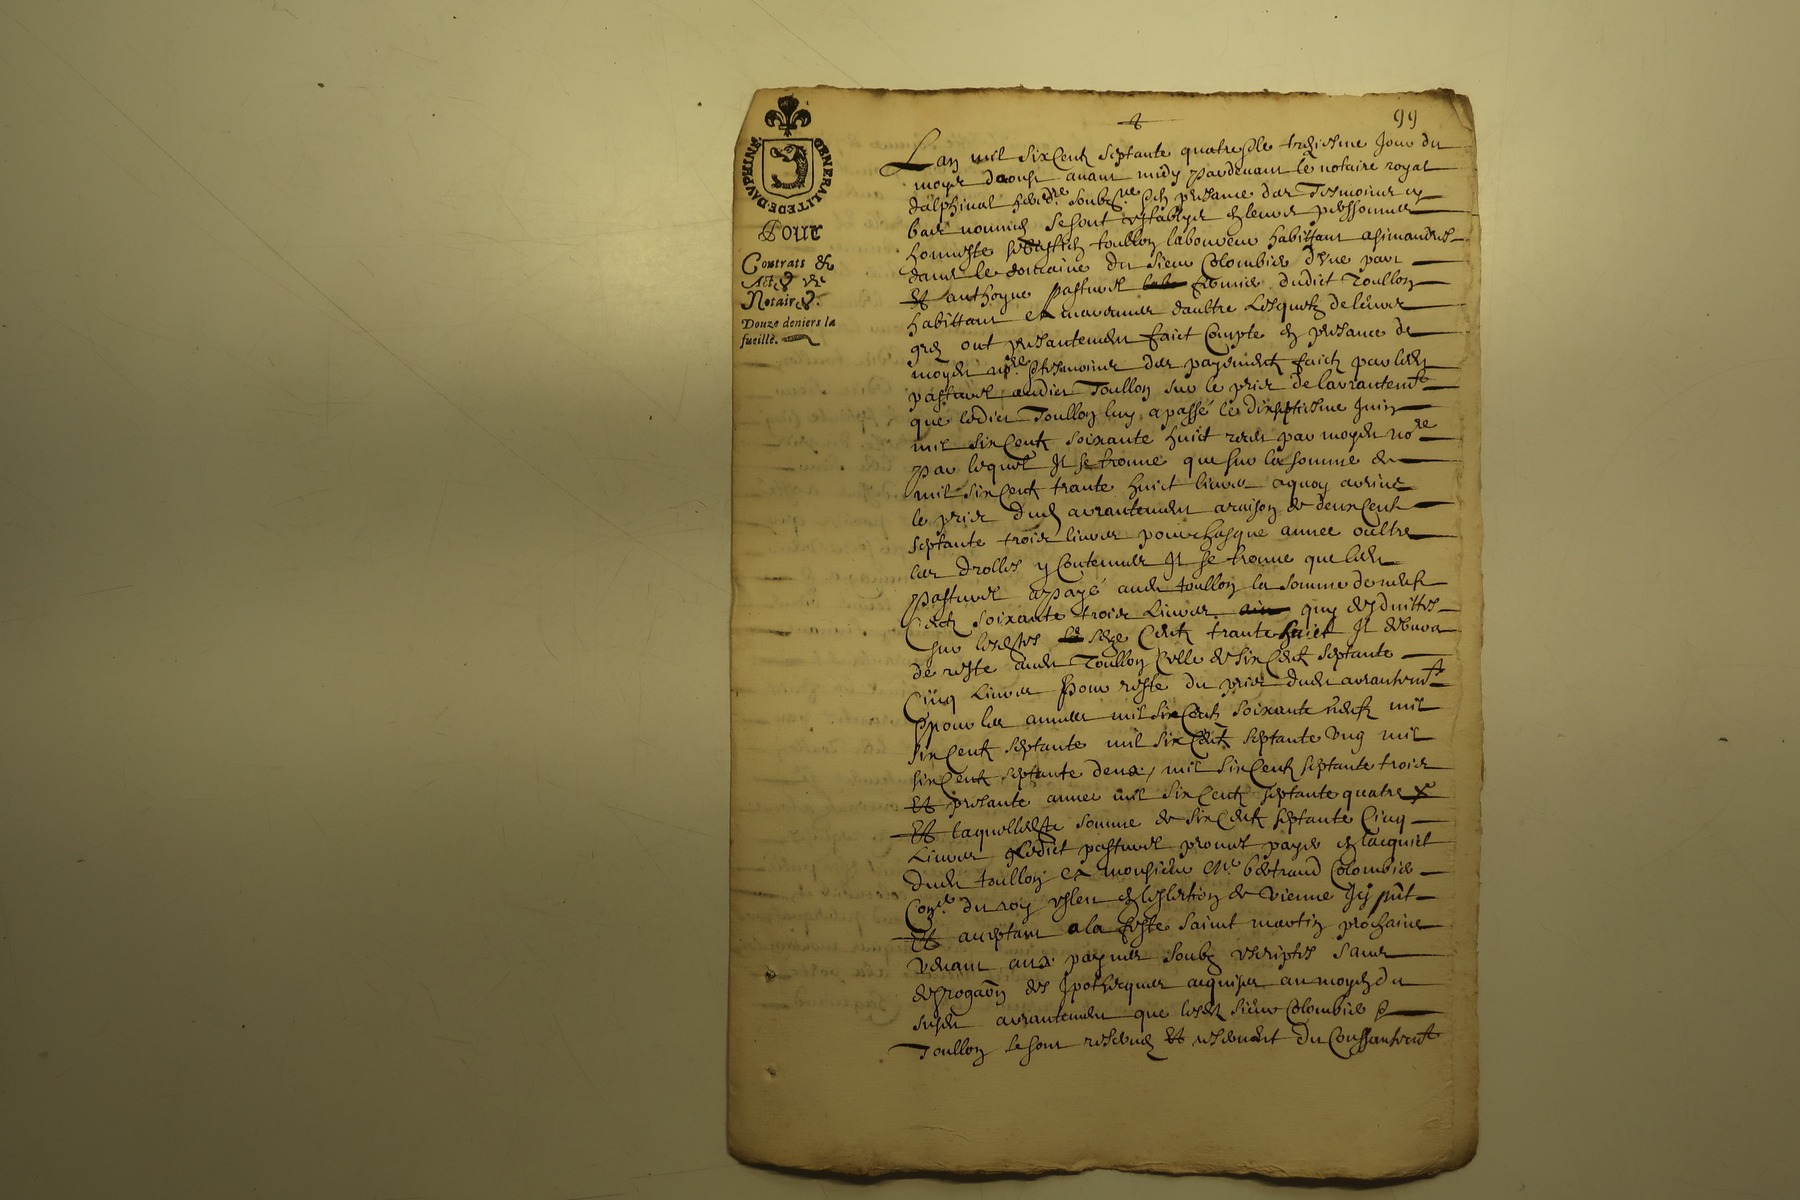 99
GENERALITE DE DAUPHINE
Pour
Contrats &
Actes de
Notaires.
Douze deniers la
fueille.
Lan mil six Cent septante quatre & le tresiesme Jour du
moys daoust avant midy pardevant le notaire royal
dalphinal soubz.ne & en presance des Tesmoins cy
bas nommes se sont establys en leurs perssonnes
honneste toullon laboureur habittant a simandres
dans le domaine du sieur Colombier dune part
Et anthoyne pasturel fermier dudict Toullon
habittant a daultre Lesquels de leurs
gres ont presantement faict Compte en presance de
moydit no.re & tesmoins des payements faicts par ledit
pasturel audict Toullon sur le prix de larrantem.t
que ledict Toullon luy a passé le dixseptiesme Juin
mil six Cents soixante huict receu par moydit no.re
par lequel Il se trouve que sur la somme de
mil six Cents trante huict livres aquoy arrive
le prix dud arrantement a raison de deux Cents
septante trois livres pour chasque annee oultre
les drolles y Contenues Il se trouve que ledit
pasturel a payé audit toullon la somme de neuf
Cents soixante trois Livres quy desduittes
sur lesdittes seze Cents trante huict Il debvra
de reste audit Toullon Celle de six Cents septante
Cinq Livres pour reste du prix dudit arrantem.t
pour les annees mil six Cents soixante neuf mil
six Cents septante mil six Cents septante ung mil
six Cents septante deux, mil six Cents septante trois
Et presante annee mil six Cents septante quatre
Et laquelle ditte somme de six Cents septante Cinq
Livres ledict pasturel promet payer en lacquict
dudit toullon a monsieur M.e bertrand Colombier
Con.er du roy esleu en leslection de vienne Icy p.nt
Et acceptant a la feste saint martin prochaine
venant aux paynes soubz escriptes sans
desrogaon des Ipothecques acquises au moyen du
susdit arrantement que lesdit sieur Colombier &
Toullon se sont reservés Et reservent Du Conssantem.t